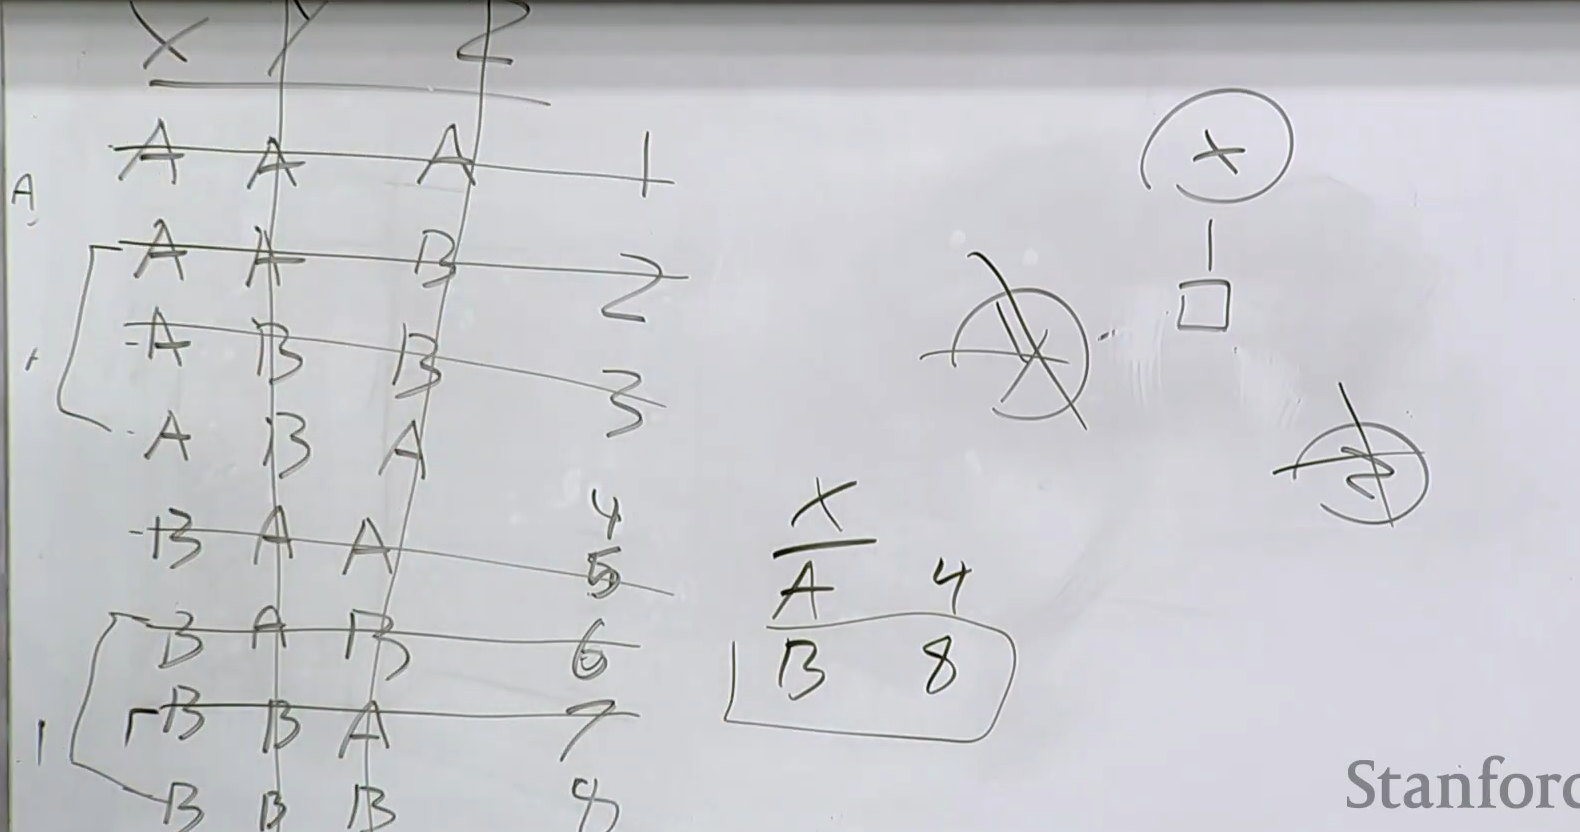 X Y Z
A A A 1
A
A A B 2
A B B 3
A B A 4
B A A 5
B A B 6
B B A 7
B B B 8
X
A 4
B 8
X
Y
Z
Stanford